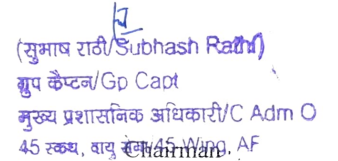 (सुभाष राठी/Subhash Rathi)
ग्रुप कैप्टन/Gp Capt
मुख्य प्रशासनिक अधिकारी/C Adm O
45 स्कंध, वायु सेना/45 Wing, AF
Chairman